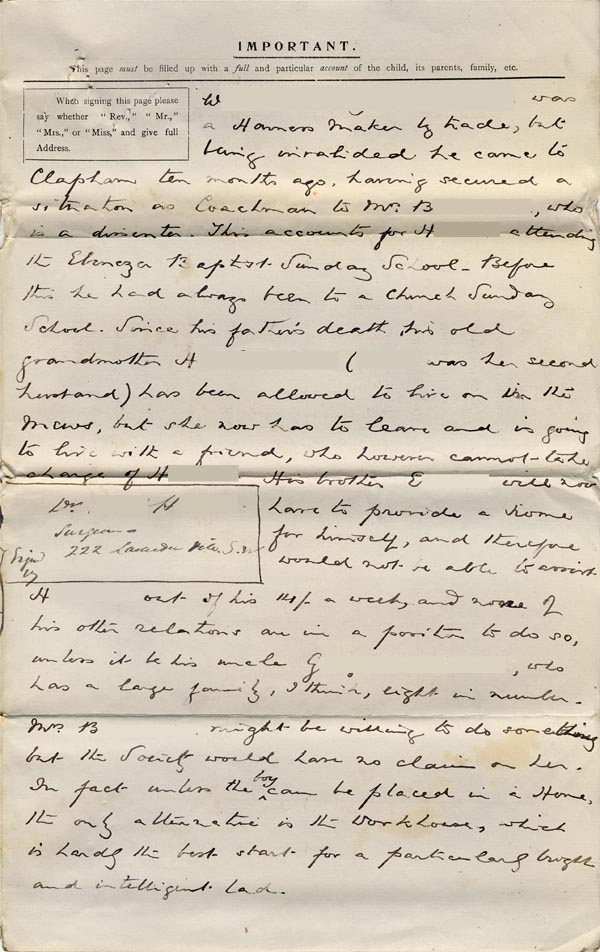 IMPORTANT.
This page must be filled up with a full and particular account of the child, its parents, family, etc.
When signing this page please
say whether "Rev.," "Mr.,"
"Mrs.," or "Miss," and give full
Address.
W was
a Harness Maker by trade, but
being invalided he came to
Clapham ten months ago, having secured a
situation as Coachman to Mrs. B , who
is a dissenter. This accounts for H attending
the Ebenezer Baptist Sunday School. Before
this he had always been to a Church Sunday
School. Since his father's death, his old
grandmother H ( was her second
husband) has been allowed to live on in the
Mews, but she now has to leave and is going
to live with a friend, who however cannot take
charge of H His brother E will now
have to provide a home
for himself, and therefore
would not be able to assist
Dr. H
Surgeon
222 Lavender Hill S.W.
Signed
by
H out of his 14/- a week, and none of
his other relations are in a position to do so,
unless it be his uncle G , who
has a large family, I think, eight in number.
Mrs. B might be willing to do something
but the Society would have no claim on her.
In fact unless the boy can be placed in a Home,
the only alternative is the Workhouse, which
is hardly the best start for a particularly bright
and intelligent lad.